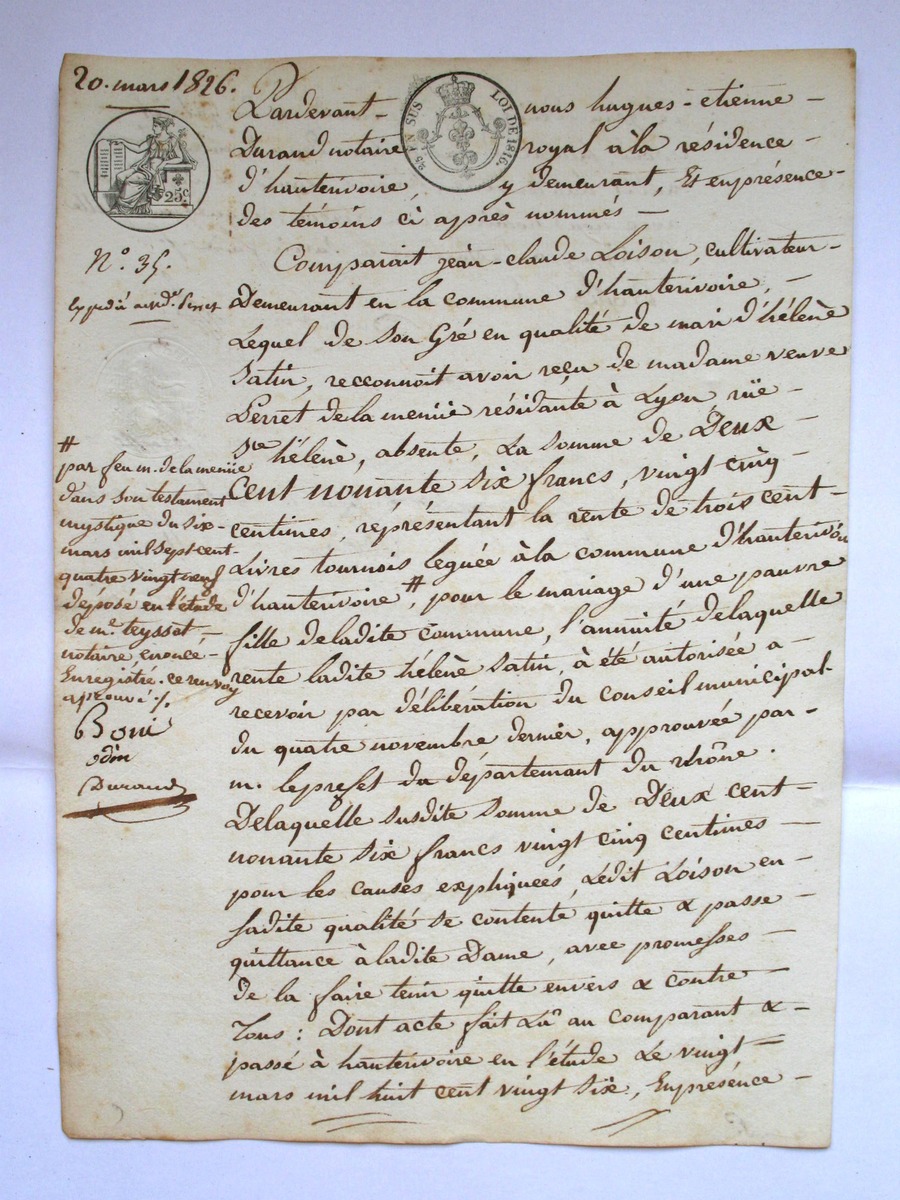 20. mars 1826.
25c
EN SUS LOI DE 1816.
Pardevant nous hugues-etienne
Durand notaire royal à la résidence
d'hauterivoire, y demeurant, Et en présence
des témoins ci après nommés
Comparait jean-claude Loison, cultivateur
Demeurant en la commune d'hauterivoire,
Lequel de son Gré en qualité de mari d'hélène
Satin, reconnoit avoir reçu de madame veuve
Perret de la menüe résidante à Lyon, rüe
Ste hélène, absente, La somme de Deux
Cent nonante six francs, vingt cinq
centimes, représentant la rente de trois cent
Livres tournois leguée à la commune d'hauterivoire
d'hauterivoire #, pour le mariage d'une pauvre
fille de ladite commune, l'annuité de laquelle
rente ladite hélène Satin, à été autorisée a
recevoir par délibération du Conseil municipal
du quatre novembre dernier, approuvée par
m. le prefet du département du rhône.
De laquelle susdite somme de Deux cent
nonante six francs vingt cinq centimes
pour les causes expliquées, Ledit Loison en
sadite qualité se contente quitte & passe
quittance à ladite Dame, avec promesses
de la faire tenir quitte envers & contre
Tous: Dont acte fait Lû au comparant &
passé à hauterivoire en l'étude Le vingt
mars mil huit cent vingt six, En présence
N°. 35.
Expédié a md.e Perret
#
par feu m. de la menüe
dans son testament
mystique du six
mars mil sept cent
quatre vingt neuf
déposé en l'étude
de m.e teyssot,
notaire,
Enregistré. ce renvoy
aprouvé ./.
Durand